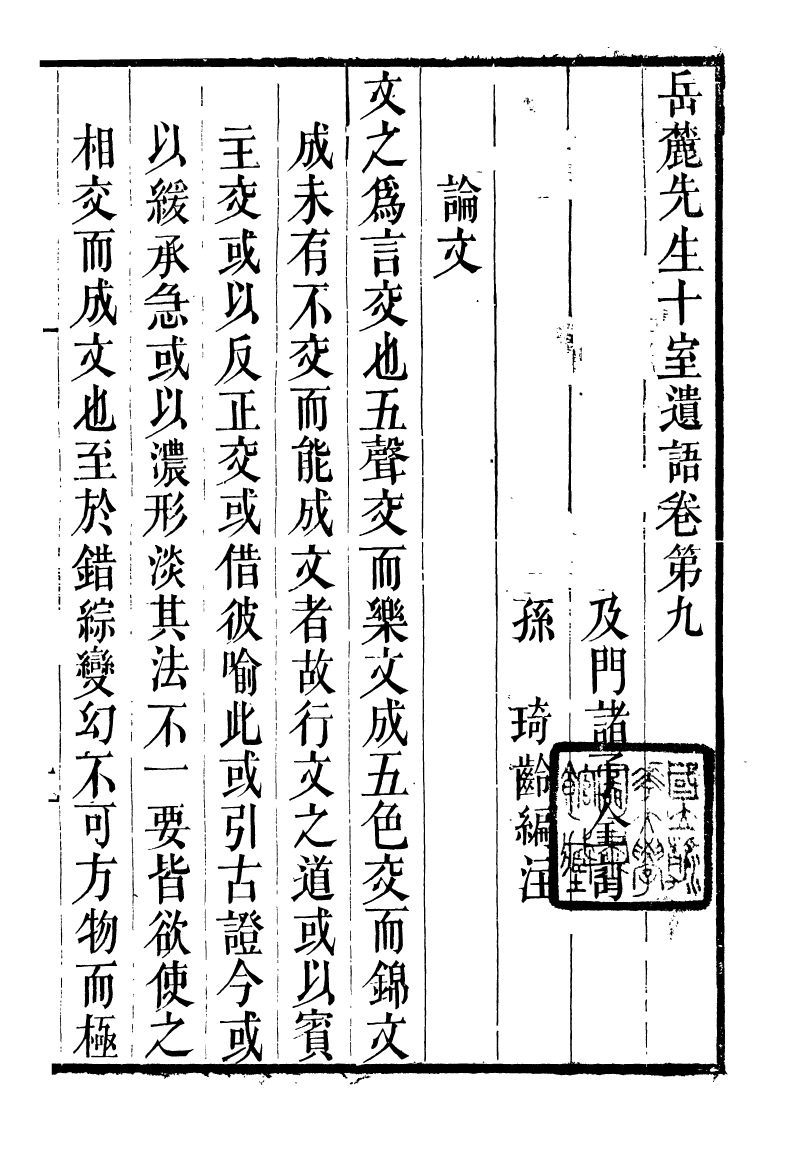 岳麓先生十室遺語卷第九
及門諸子
孫　琦齡編注
論文
文之爲言交也五聲交而樂文成五色交而錦文
成未有不交而能成文者故行文之道或以賓
主交或以反正交或借彼喻此或引古證今或
以緩承急或以濃形淡其法不一要皆欲使之
相交而成文也至於錯綜變幻不可方物而極